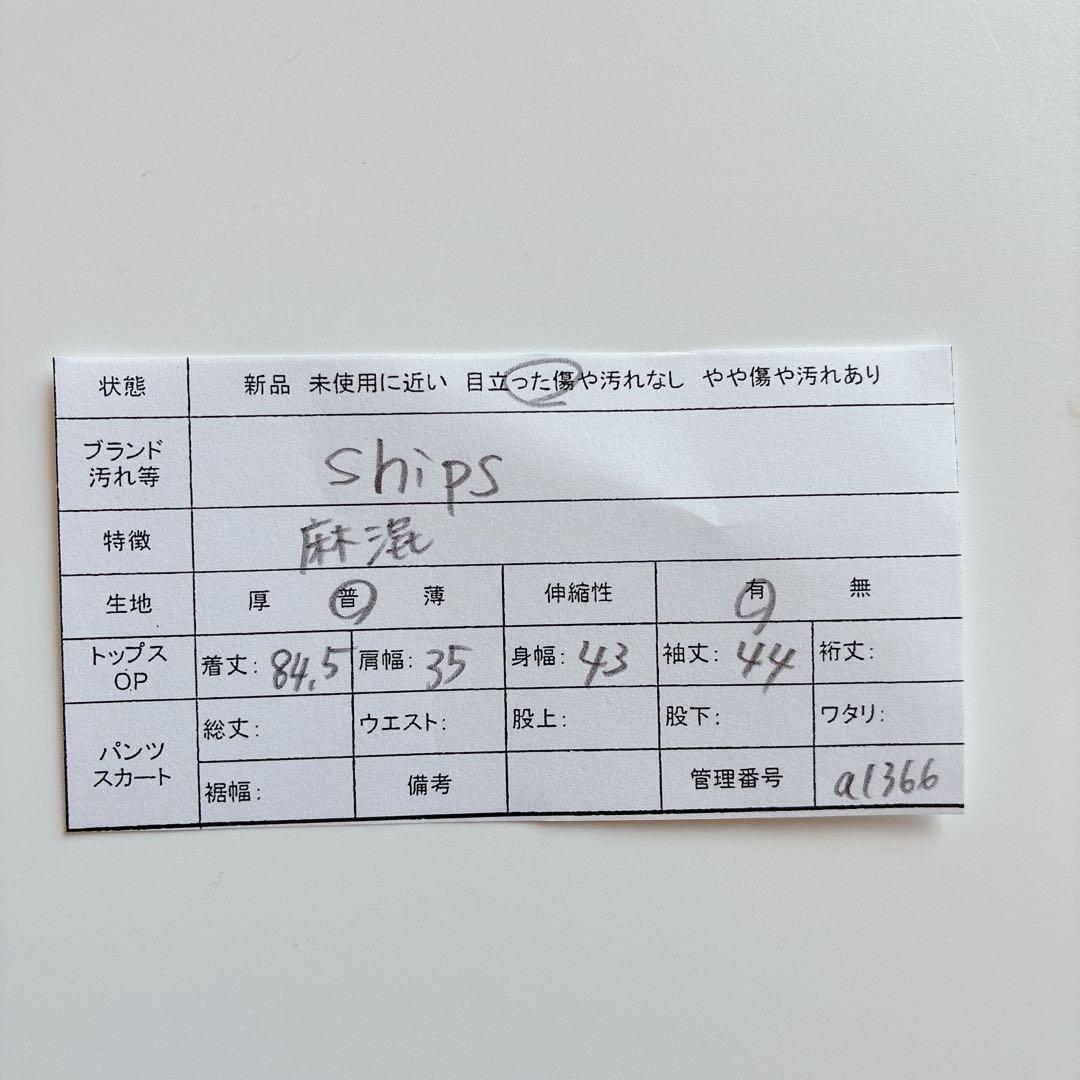 状態 新品 未使用に近い 目立った傷や汚れなし やや傷や汚れあり
ブランド
汚れ等
ships
特徴 麻混
生地 厚 普 薄 伸縮性 有 無
トップス
O.P
着丈: 84.5 肩幅: 35 身幅: 43 袖丈: 44 裄丈:
パンツ
スカート
総丈: ウエスト: 股上: 股下: ワタリ:
裾幅: 備考 管理番号 a1366